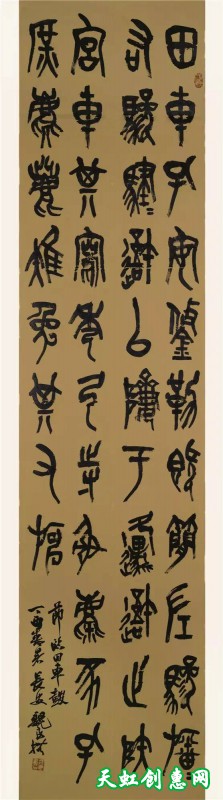 田車孔安鋚勒既簡左驂旛
右驂騝避以隮于邍避止陝
宮車其寫秀弓寺射麋豕孔
庶麀鹿雉兔其又旃
節臨田車鼓
丁酉長安魏
天虹创惠网